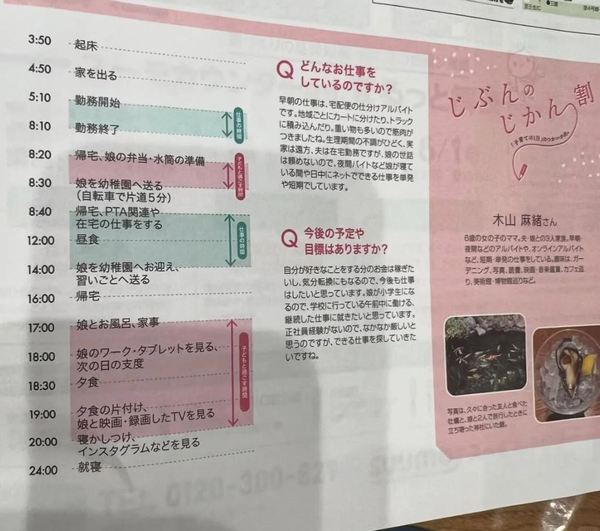 3:50 起床
4:50 家を出る
5:10 勤務開始
8:10 勤務終了
仕事の時間
8:20 帰宅、娘の弁当・水筒の準備
8:30 娘を幼稚園へ送る
(自転車で片道5分)
子どもと過ごす時間
8:40 帰宅、PTA関連や
在宅の仕事をする
12:00 昼食
仕事の時間
14:00 娘を幼稚園へお迎え、
習いごとへ送る
16:00 帰宅
17:00 娘とお風呂、家事
18:00 娘のワーク・タブレットを見る、
次の日の支度
18:30 夕食
19:00 夕食の片付け、
娘と映画・録画したTVを見る
子どもと過ごす時間
20:00 寝かしつけ、
インスタグラムなどを見る
24:00 就寝
Q どんなお仕事を
しているのですか?
早朝の仕事は、宅配便の仕分けアルバイト
です。地域ごとにカートに分けたり、トラック
に積み込んだり。重い物も多いので筋肉が
つきましたね。生理期間の不調がひどく、実
家は遠方、夫は在宅勤務ですが、娘の世話
は頼めないので、夜間バイトなど娘が寝て
いる間や日中にネットでできる仕事を単発
や短期でしています。
Q 今後の予定や
目標はありますか?
自分が好きなことをする分のお金は稼ぎた
いし、気分転換にもなるので、今後も仕事
はしたいと思っています。娘が小学生にな
るので、学校に行っている午前中に働ける、
継続した仕事に就きたいと思っています。
正社員経験がないので、なかなか厳しいと
思うのですが、できる仕事を探していきた
いですね。
じぶんの
じかん割
木山 麻緒さん
6歳の女の子のママ。夫・娘との3人家族。早朝・
夜間などのアルバイトや、オンラインアルバイト
など、短期・単発の仕事をしている。趣味は、ガー
デニング、写真、読書、映画・音楽鑑賞、カフェ巡
り、美術館・博物館巡りなど。
写真は、久々に会った友人と食べた
牡蠣と、娘と2人で旅行したときに
立ち寄った神社にいた鯉。